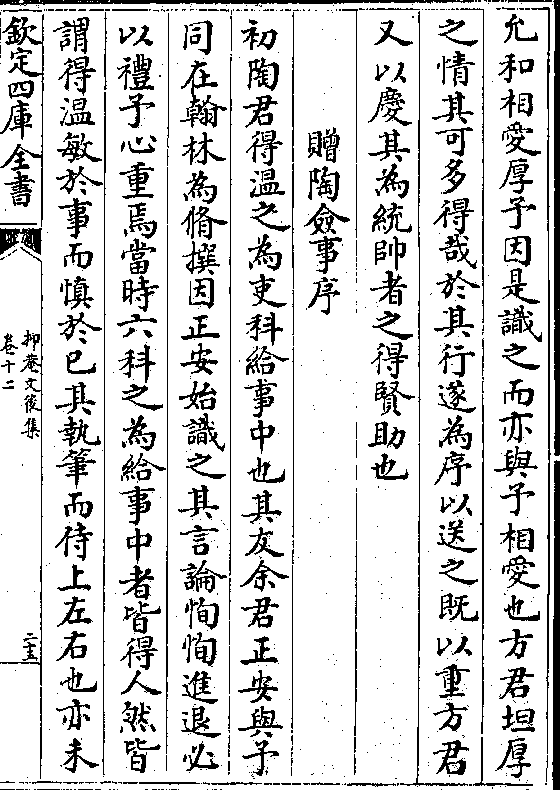 允和相愛厚予因是識之而亦與予相愛也方君坦厚
之情其可多得哉於其行遂為序以送之既以重方君
又以慶其為統帥者之得賢助也
贈陶僉事序
初陶君得溫之為吏科給事中也其友余君正安與予
同在翰林為脩撰因正安始識之其言論恂恂進退必
以禮予心重焉當時六科之為給事中者皆得人然皆
謂得溫敏於事而慎於已其執筆而侍上左右也亦未
欽定四庫全書
抑菴文後集
卷十二
二十五